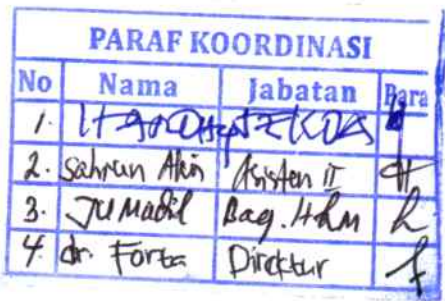 PARAF KOORDINASI
No Nama Jabatan Para
1. SEKDA
2. Sahrun Akin Asisten II
3. JUMADIL Bag. HKM
4. dr. Forta Direktur